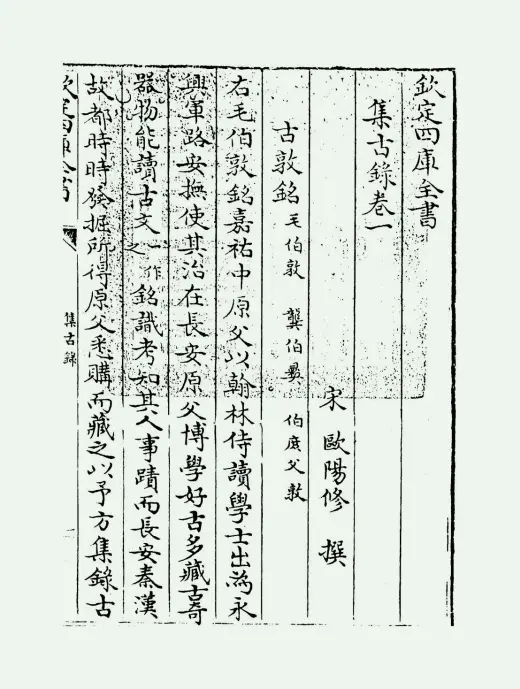 欽定四庫全書
集古錄卷一
宋 歐陽修 撰
古敦銘 毛伯敦 龔伯彝 伯庶父敦
右毛伯敦銘嘉祐中原父以翰林侍讀學士出為永
興軍路安撫使其治在長安原父博學好古多藏古奇
器物能讀古文一作之銘識考知其人事蹟而長安秦漢
故都時時發掘所得原父悉購而藏之以予方集錄古
欽定四庫全書
集古錄
一